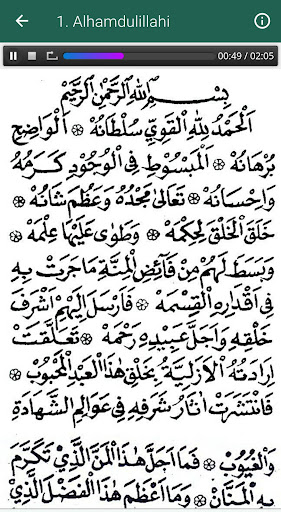 1. Alhamdulillahi
00:49 / 02:05
بِسْمِ اللهِ الرَّحْمٰنِ الرَّحِيْمِ
اَلْحَمْدُ لِلّٰهِ الْقَوِيِّ سُلْطَانُهْ ۞ اَلْوَاضِحِ
بُرْهَانُهْ ۞ اَلْمَبْسُوْطِ فِى الْوُجُوْدِ كَرَمُهُ
وَاِحْسَانُهْ ۞ تَعَالَى مَجْدُهُ وَعَظُمَ شَانُهْ ۞
خَلَقَ الْخَلْقَ لِحِكْمَهْ ۞ وَطَوٰى عَلَيْهَا عِلْمَهْ ۞
وَبَسَطَ لَهُمْ مِنْ فَآئِضِ الْمِنَّةِ مَاجَرَتْ بِهِ
فِى اَقْدَارِهِ الْقِسْمَهْ ۞ فَاَرْسَلَ اِلَيْهِمْ اَشْرَفَ
خَلْقِهِ وَاَجَلَّ عَبِيْدِهِ رَحْمَهْ ۞ تَعَلَّقَتْ
اِرَادَتُهُ الْاَزَلِيَّةُ بِخَلْقِ هٰذَا الْعَبْدِ الْمَحْبُوْبِ
فَانْتَشَرَتْ اٰثَارُ شَرَفِهِ فِى عَوَالِمِ الشَّهَادَةِ
وَالْغُيُوْبِ ۞ فَمَا اَجَلَّ هٰذَا الْمَنَّ الَّذِيْ تَكَرَّمَ
بِهِ الْمَنَّانْ ۞ وَمَا اَعْظَمَ هٰذَا الْفَضْلَ الَّذِيْ